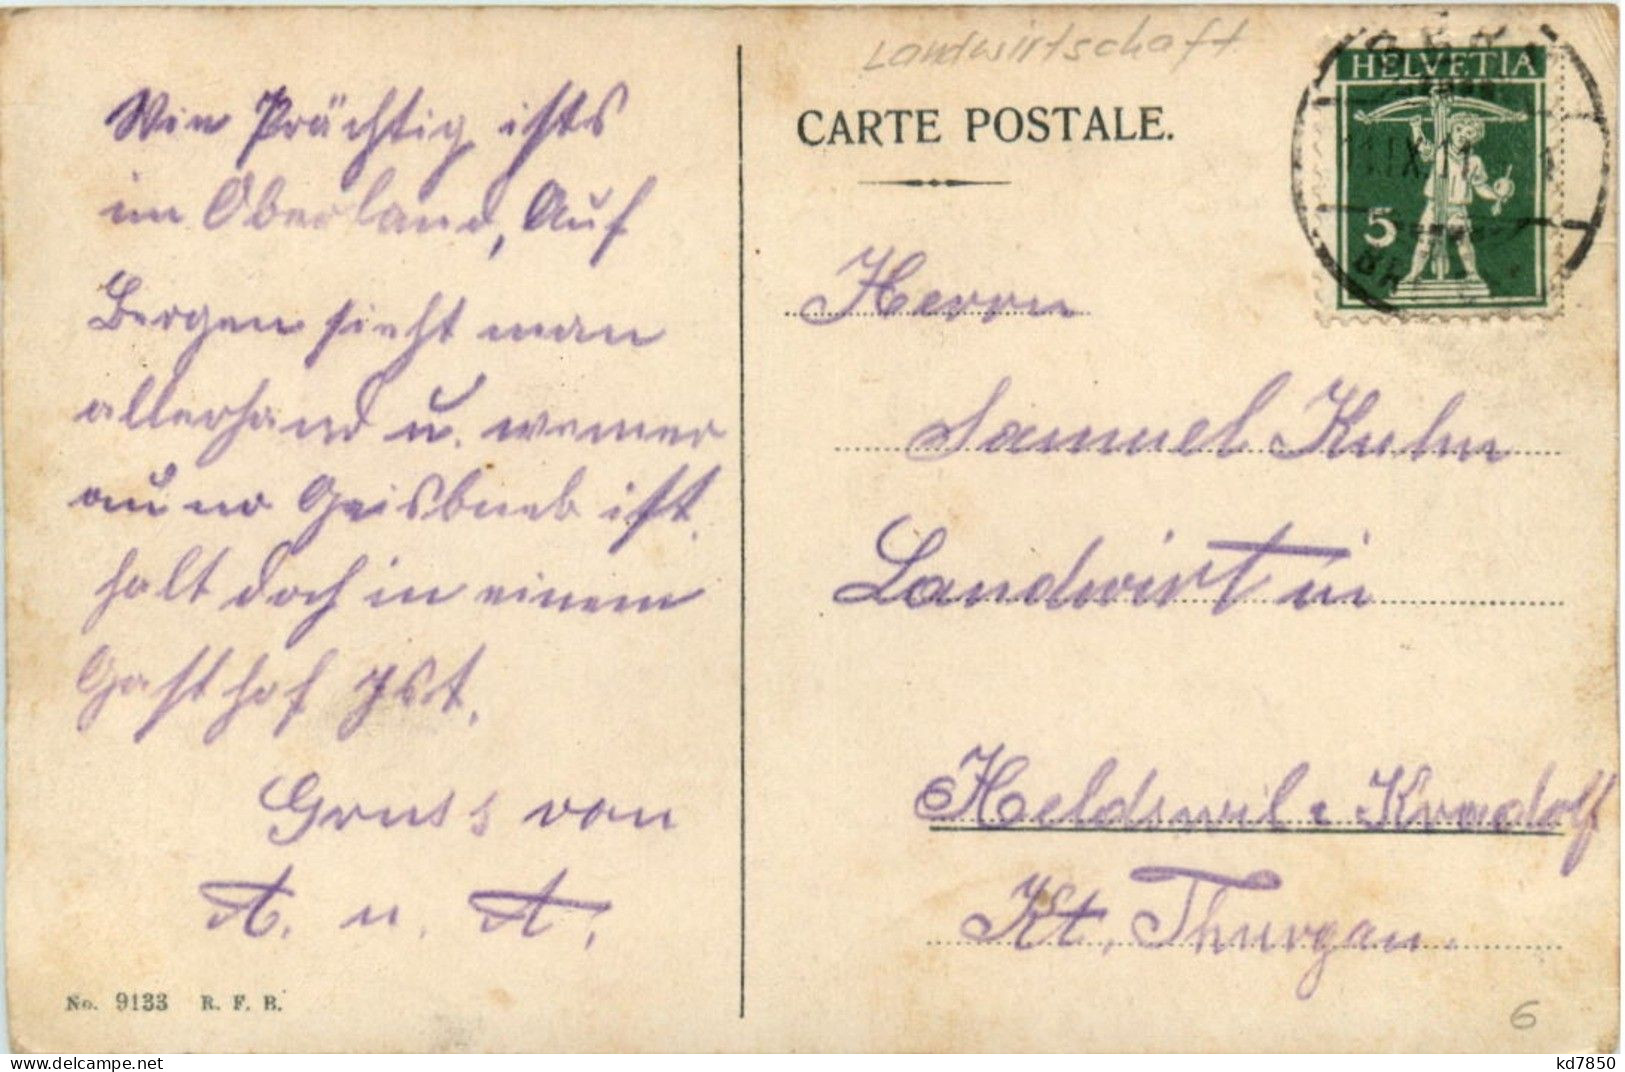 Landwirtschaft
CARTE POSTALE.
HELVETIA
5
Wie Prächtig ists
im Oberland, Auf
Bergen sieht man
allerhand u. wemer
au no Geisbueb ist,
halt doch in einem
Gasthof Jst.
Gruss von
A. u. A.
Herrn
Samuel Kuhn
Landwirt in
Heldswil : Kradolf
Kt. Thurgau.
No. 9133 R. F. B.
6
kd7850